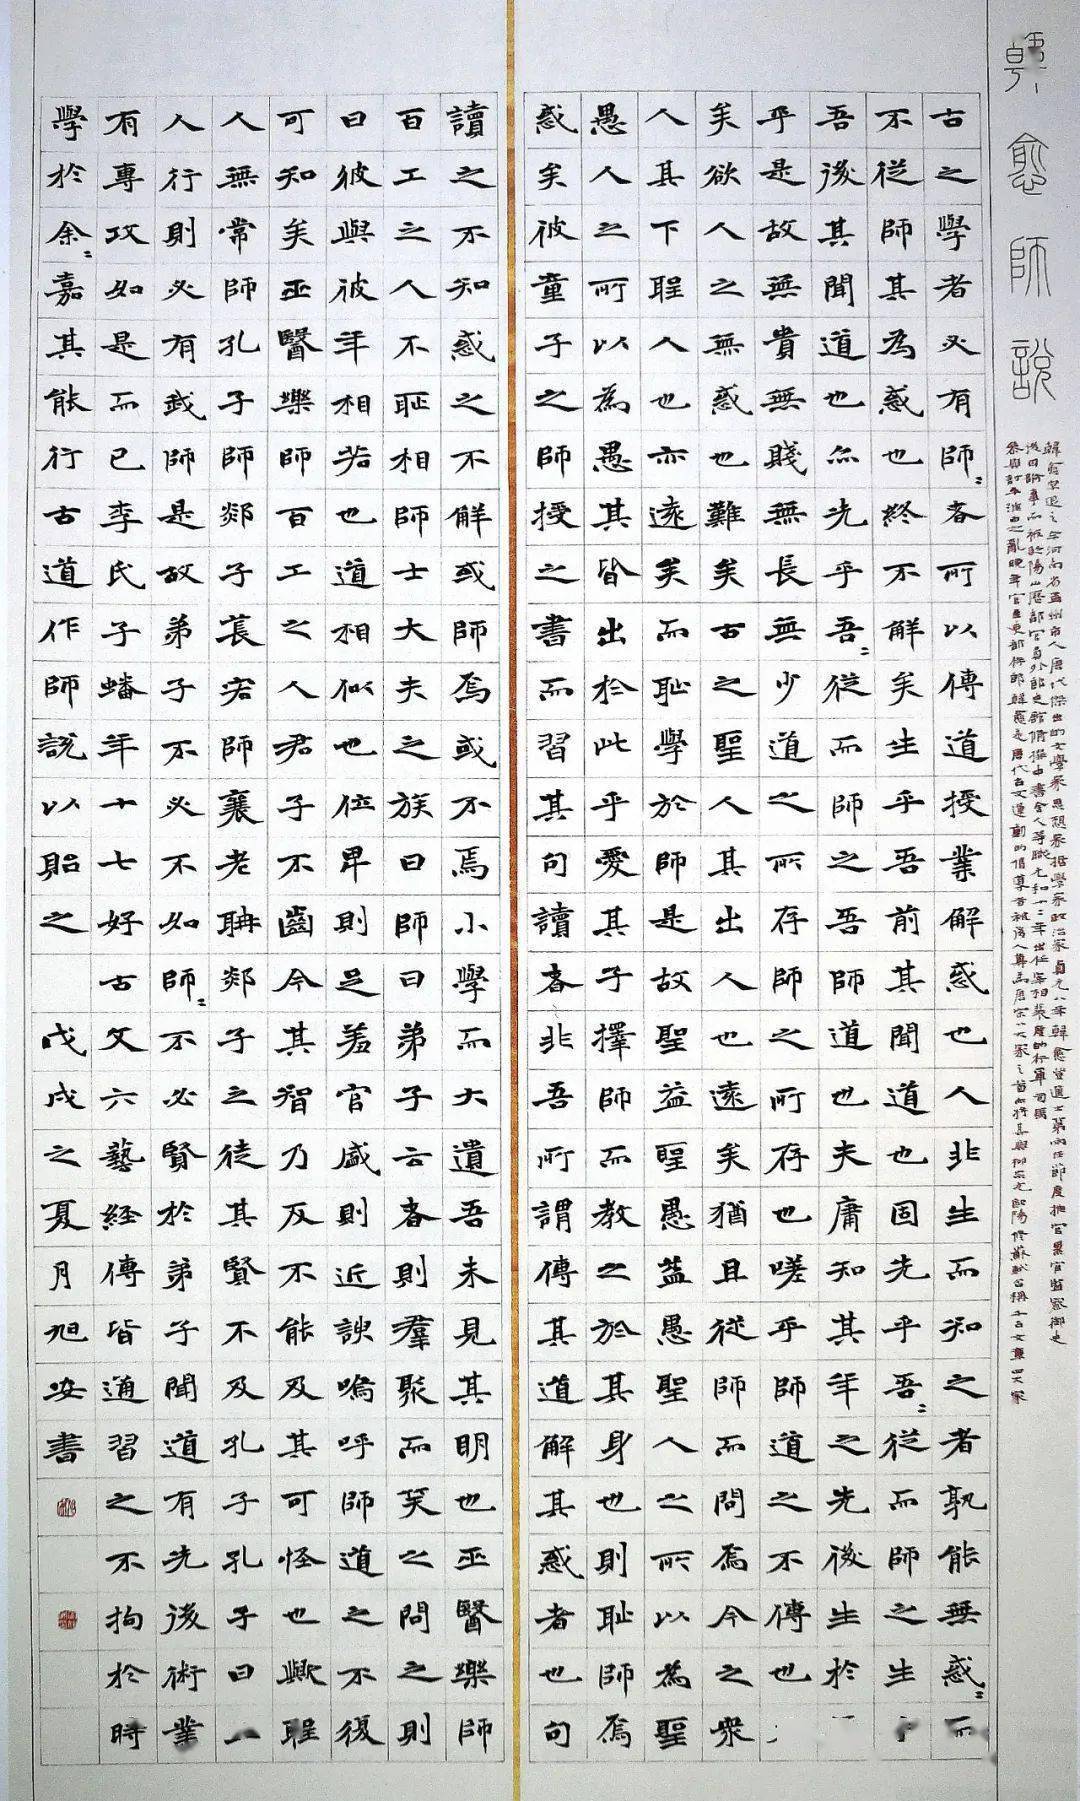 韓愈師說
韓愈字退之今河南省孟州市人唐代傑出的文學家思想家哲學家政治家貞元八年韓愈登進士第兩任節度推官累官監察御史
後因論事而被貶陽山歷都官員外郎史館修撰中書舍人等職元和十二年出任宰相裴度的行軍司馬
參與討平淮西之亂晚年官至吏部侍郎韓愈是唐代古文運動的倡導者被後人尊為唐宋八大家之首與柳宗元歐陽修蘇軾合稱千古文章四大家
古之學者必有師〻者所以傳道授業解惑也人非生而知之者孰能無惑〻而
不從師其為惑也終不解矣生乎吾前其聞道也固先乎吾〻從而師之生乎
吾後其聞道也亦先乎吾〻從而師之吾師道也夫庸知其年之先後生於
乎是故無貴無賤無長無少道之所存師之所存也嗟乎師道之不傳也
矣欲人之無惑也難矣古之聖人其出人也遠矣猶且從師而問焉今之眾
人其下聖人也亦遠矣而恥學於師是故聖益聖愚益愚聖人之所以為聖
愚人之所以為愚其皆出於此乎愛其子擇師而教之於其身也則恥師焉
惑矣彼童子之師授之書而習其句讀者非吾所謂傳其道解其惑者也句
讀之不知惑之不解或師焉或不焉小學而大遺吾未見其明也巫醫樂師
百工之人不恥相師士大夫之族曰師曰弟子云者則羣聚而笑之問之則
曰彼與彼年相若也道相似也位卑則足羞官盛則近諛嗚呼師道之不復
可知矣巫醫樂師百工之人君子不齒今其智乃反不能及其可怪也歟聖
人無常師孔子師郯子萇宏師襄老聃郯子之徒其賢不及孔子孔子曰
人行則必有我師是故弟子不必不如師〻不必賢於弟子聞道有先後術業
有專攻如是而已李氏子蟠年十七好古文六藝經傳皆通習之不拘於時
學於余〻嘉其能行古道作師說以貽之 戊戌之夏月旭安書